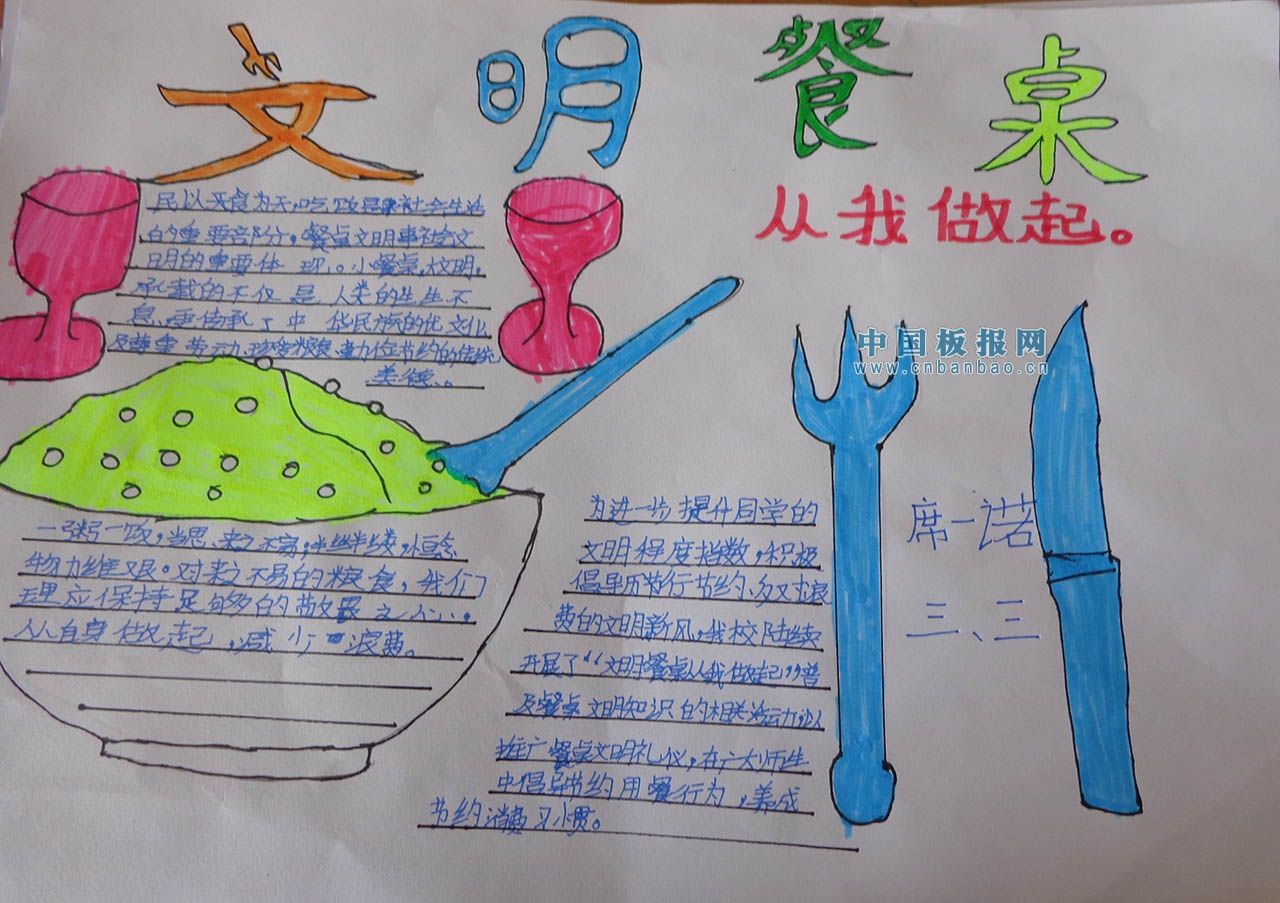 文明餐桌
从我做起。
民以天食为天,吃饭是社会生活
的重要部分,餐桌文明事社会文
明的重要体现。小餐桌,大文明,
承载的不仅是人类的生生不
息,更传承了中华民族的优文化
及尊重劳动,珍惜粮食,勤俭节约的传统
美德。
中国板报网
www.cnbanbao.cn
一粥一饭,当思来之不易;半丝半缕,恒念
物力维艰。对来之不易的粮食,我们
理应保持足够的敬畏之心,
从自身做起,减少浪费。
为进一步提升同学的
文明程度指数,积极
倡导厉行节约反对浪
费的文明新风,我校陆续
开展了“文明餐桌从我做起”普
及餐桌文明知识的相关活动以
推广餐桌文明礼仪,在广大师生
中倡导节约用餐行为,养成
节约消费习惯。
席一诺
三、三